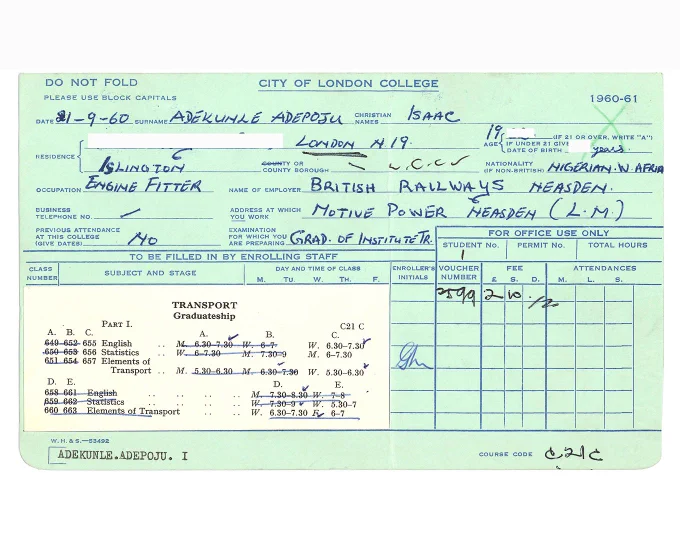 DO NOT FOLD
CITY OF LONDON COLLEGE
PLEASE USE BLOCK CAPITALS
1960-61
DATE 21-9-60 SURNAME ADEKUNLE ADEPOJU CHRISTIAN NAMES ISAAC
RESIDENCE LONDON N.19. AGE 19 (IF 21 OR OVER, WRITE "A") IF UNDER 21 GIVE DATE OF BIRTH years
ISLINGTON COUNTY OR COUNTY BOROUGH L.C.C. NATIONALITY (IF NON-BRITISH) NIGERIAN. W AFRIA
OCCUPATION ENGINE FITTER NAME OF EMPLOYER BRITISH RAILWAYS NEASDEN.
BUSINESS TELEPHONE NO. ADDRESS AT WHICH YOU WORK MOTIVE POWER NEASDEN (L.M.)
PREVIOUS ATTENDANCE AT THIS COLLEGE (GIVE DATES) NO EXAMINATION FOR WHICH YOU ARE PREPARING GRAD. OF INSTITUTE TR.
FOR OFFICE USE ONLY
STUDENT No. PERMIT No. TOTAL HOURS
1
TO BE FILLED IN BY ENROLLING STAFF
CLASS NUMBER SUBJECT AND STAGE DAY AND TIME OF CLASS M. TU. W. TH. F. ENROLLER'S INITIALS VOUCHER NUMBER FEE £ S. D. ATTENDANCES M. L. S.
2599 2 10
TRANSPORT
Graduateship
PART I. C21 C
A. B. C. A. B. C.
649 652 655 English .. .. M. 6.30-7.30 W. 6-7 W. 6.30-7.30
650 653 656 Statistics .. .. W. 6-7.30 M. 7.30-9 M. 6-7.30
651 654 657 Elements of
Transport .. .. M. 5.30-6.30 M. 6.30-7.30 W. 5.30-6.30
D. E. D. E.
658 661 English .. .. .. M. 7.30-8.30 W. 7-8
659 662 Statistics .. .. .. W. 7.30-9 W. 5.30-7
660 663 Elements of Transport .. .. W. 6.30-7.30 F. 6-7
W. H. & S.—53492
ADEKUNLE.ADEPOJU. I
COURSE CODE C21C